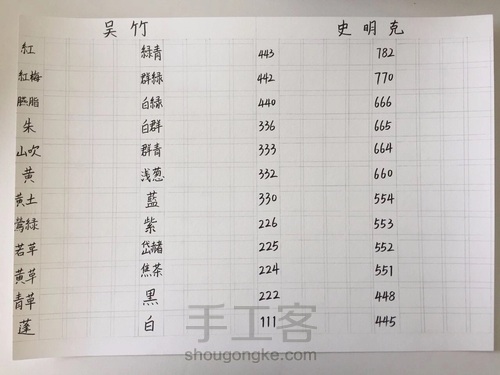 吴竹 史明克
紅 綠青 443 782
紅梅 群緑 442 770
胭脂 白緑 440 666
朱 白群 336 665
山吹 群青 333 664
黄 浅葱 332 660
黄土 藍 330 554
鶯緑 紫 226 553
若草 岱赭 225 552
黄草 焦茶 224 551
青草 黒 222 448
蓬 白 111 445
手工客
shougongke.com